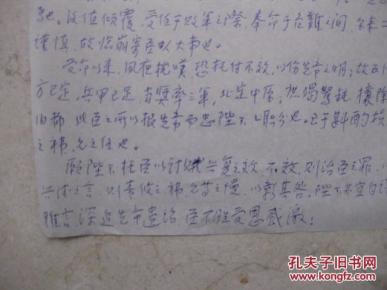 驰。后值倾覆，受任于败军之际，奉命于危难之间，尔来二
谨慎，故临崩寄臣以大事也。
受命以来，夙夜忧叹，恐托付不效，以伤先帝之明，故五
方已定，兵甲已足，当奖率三军，北定中原，庶竭驽钝，攘除
旧都，此臣之所以报先帝而忠陛下之职分也。至于斟酌损
之祎、允之任也。
愿陛下托臣以讨贼兴复之效，不效，则治臣之罪，
兴德之言，则责攸之、祎、允等之慢，以彰其咎，陛下亦宜自
雅言，深追先帝遗诏，臣不胜受恩感激！
孔夫子旧书网